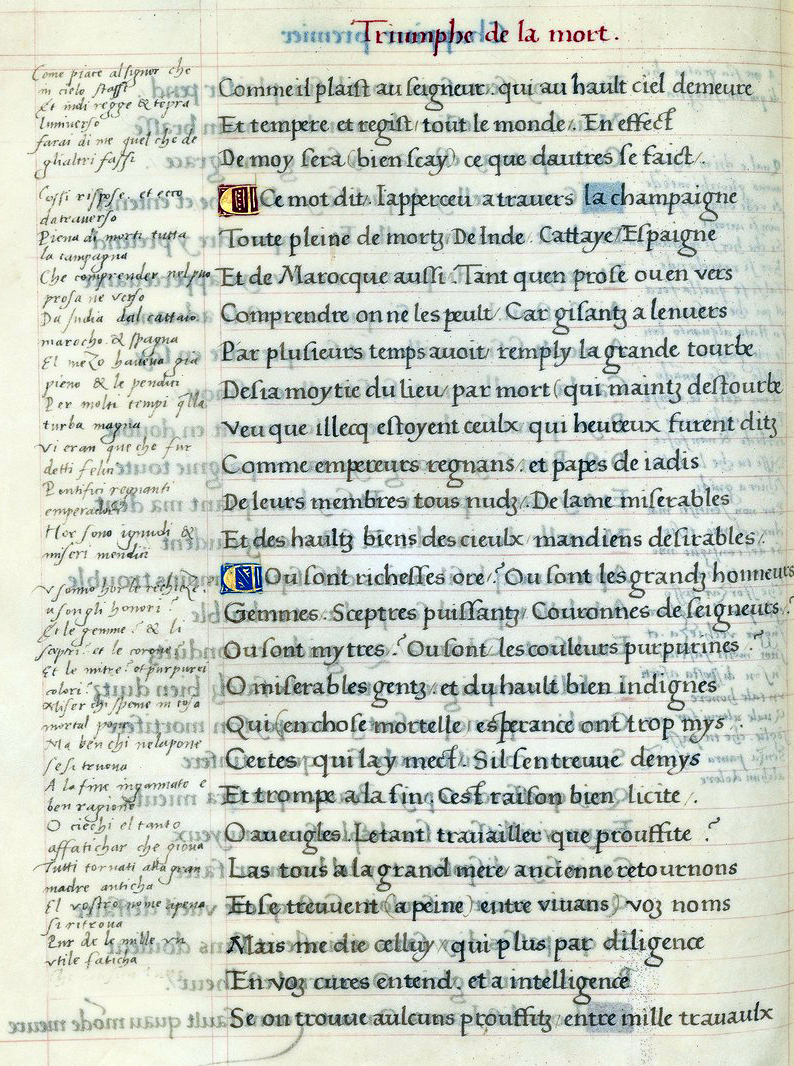 Triumphe de la mort.
Comme il plaist au seigneur. qui au hault ciel demeure
Et tempere et regist, tout le monde. En effect
De moy sera (bien scay) ce que dautres se faict.
Ce mot dit. Iapperceu a travers la champaigne
Toute pleine de mortz De Inde. Cattaye, Espaigne
Et de Marocque aussi. Tant quen prose ou en vers
Comprendre on ne les peult. Car gisantz a lenvers
Par plusieurs temps avoit, remply la grande tourbe
Desia moytie du lieu, par mort (qui maintz destourbe
Veu que illecq estoyent ceulx qui heureux furent ditz
Comme empereurs regnans. et papes de iadis
De leurs membres tous nudz. De lame miserables
Et des haultz biens des cieulx mandiens desirables.
Ou sont richesses ore? Ou sont les grandz honneurs
Gemmes. Sceptres puissantz, Couronnes de seigneurs?
Ou sont mytres? Ou sont les couleurs purpurines?
O miserables gentz, et du hault bien indignes
Qui (en chose mortelle esperance ont trop mys
Certes qui lay mect. Sil sen treuue demys
Et trompe a la fin. Cest raison bien licite.
O aveugles. Le tant travailler que prouffite?
Las tous a la grand mere ancienne retournons
Et se treuvent (a peine) entre vivans, voz noms
Mais me die celluy qui plus par diligence
En voz cures entend, et a intelligence
Se on trouve aulcuns prouffitz entre mille travaulx
Come piace al signor che
in cielo stassi
Et indi regge & tepra
luniverso
farai di me quel che de
gli altri fassi
Cossi rispose. et ecco
da traverso
Piena di morti tutta
la campagna
Che comprender nel puo
prosa ne verso
Da India dal cattaio
marocho. & spagna
El mezo haueua gia
pieno & le pendici
Per molti tempi qlla
turba magna
Vi eran que che fur
detti felici
Pontifici regnanti
emperadori
Hor sono ignudi &
miseri mendici
V sonno hor le richeze?
u son gli honori?
Et le gemme? & li
sceptri? et le corone
Et le mitre? et purpurei
colori?
Miser chi speme in cosa
mortal pone
Ma ben chi ne la pone
se si truova
A la fine ingannato e
ben ragione
O ciechi el tanto
affatichar che giova
Tutti tornati alla gran
madre anticha
El vostro nome apena
si ritrova
Pur de le mille un
utile faticha